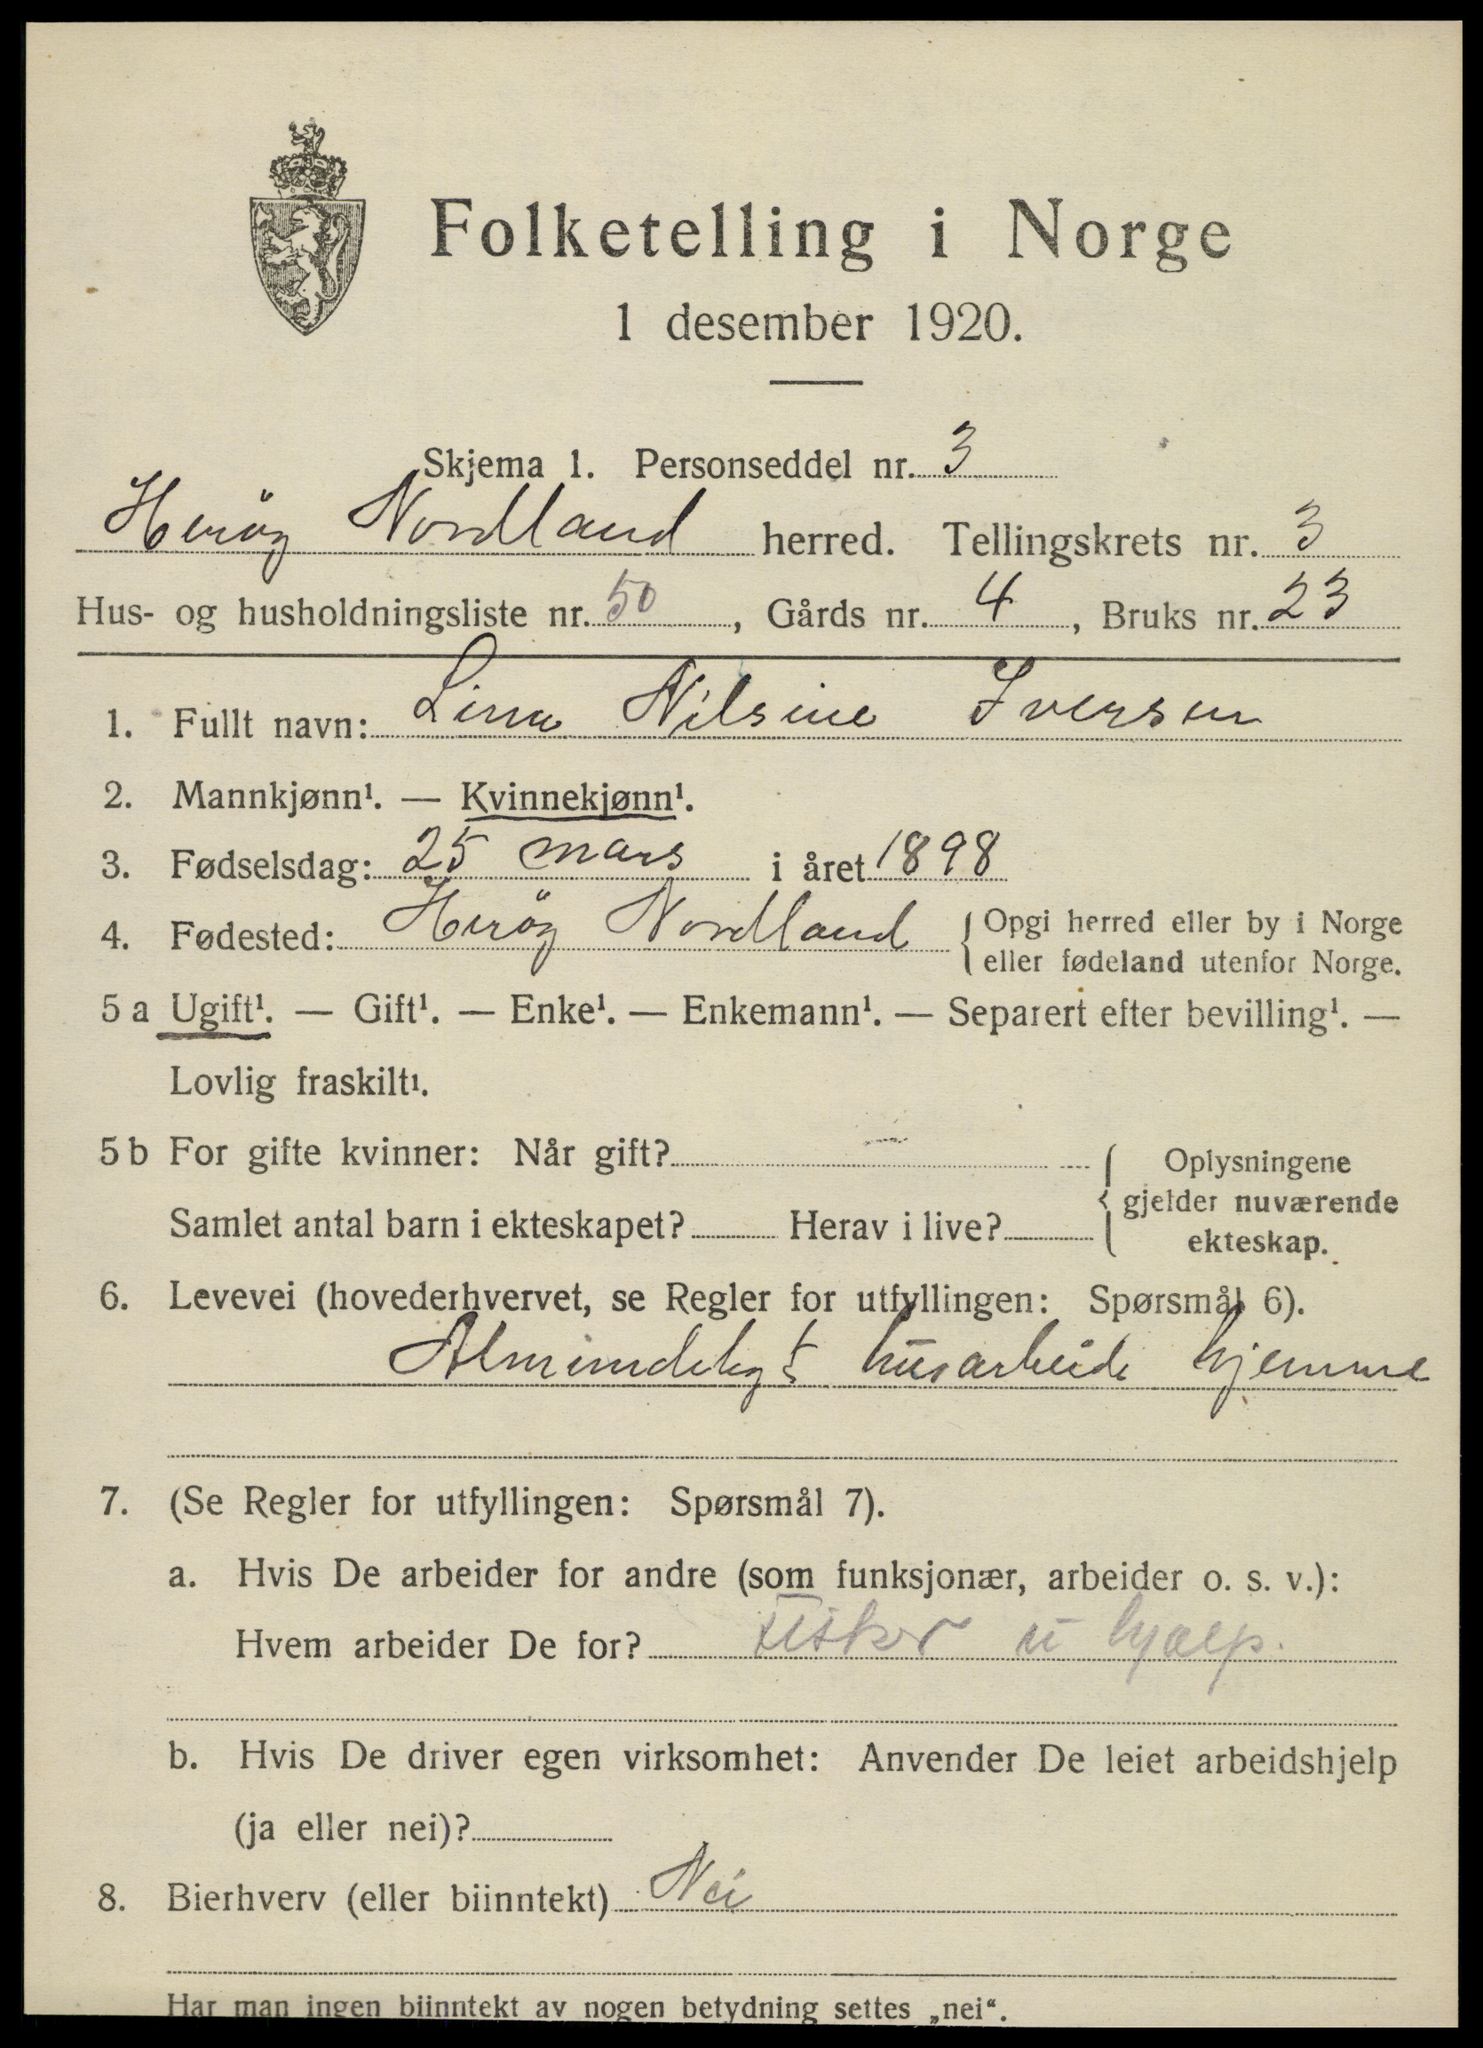 Folketelling i Norge
1 desember 1920.
Skjema 1. Personseddel nr. 3
Herøy Nordland herred. Tellingskrets nr. 3
Hus- og husholdningsliste nr. 50, Gårds nr. 4, Bruks nr. 23
1. Fullt navn: Lina Nilsine Iversen
2. Mannkjønn¹. — Kvinnekjønn¹.
3. Fødselsdag: 25 mars i året 1898
4. Fødested: Herøy Nordland { Opgi herred eller by i Norge
eller fødeland utenfor Norge.
5 a Ugift¹. — Gift¹. — Enke¹. — Enkemann¹. — Separert efter bevilling¹. —
Lovlig fraskilt¹.
5 b For gifte kvinner: Når gift? — { Oplysningene
gjelder nuværende
Samlet antal barn i ekteskapet? Herav i live?
ekteskap.
6. Levevei (hovederhvervet, se Regler for utfyllingen: Spørsmål 6).
Almindeligt husarbeide hjemme
7. (Se Regler for utfyllingen: Spørsmål 7).
a. Hvis De arbeider for andre (som funksjonær, arbeider o. s. v.):
Hvem arbeider De for? Fisker u hjælp.
b. Hvis De driver egen virksomhet: Anvender De leiet arbeidshjelp
(ja eller nei)?
8. Bierhverv (eller biinntekt) Nei
Har man ingen biinntekt av nogen betydning settes „nei“.